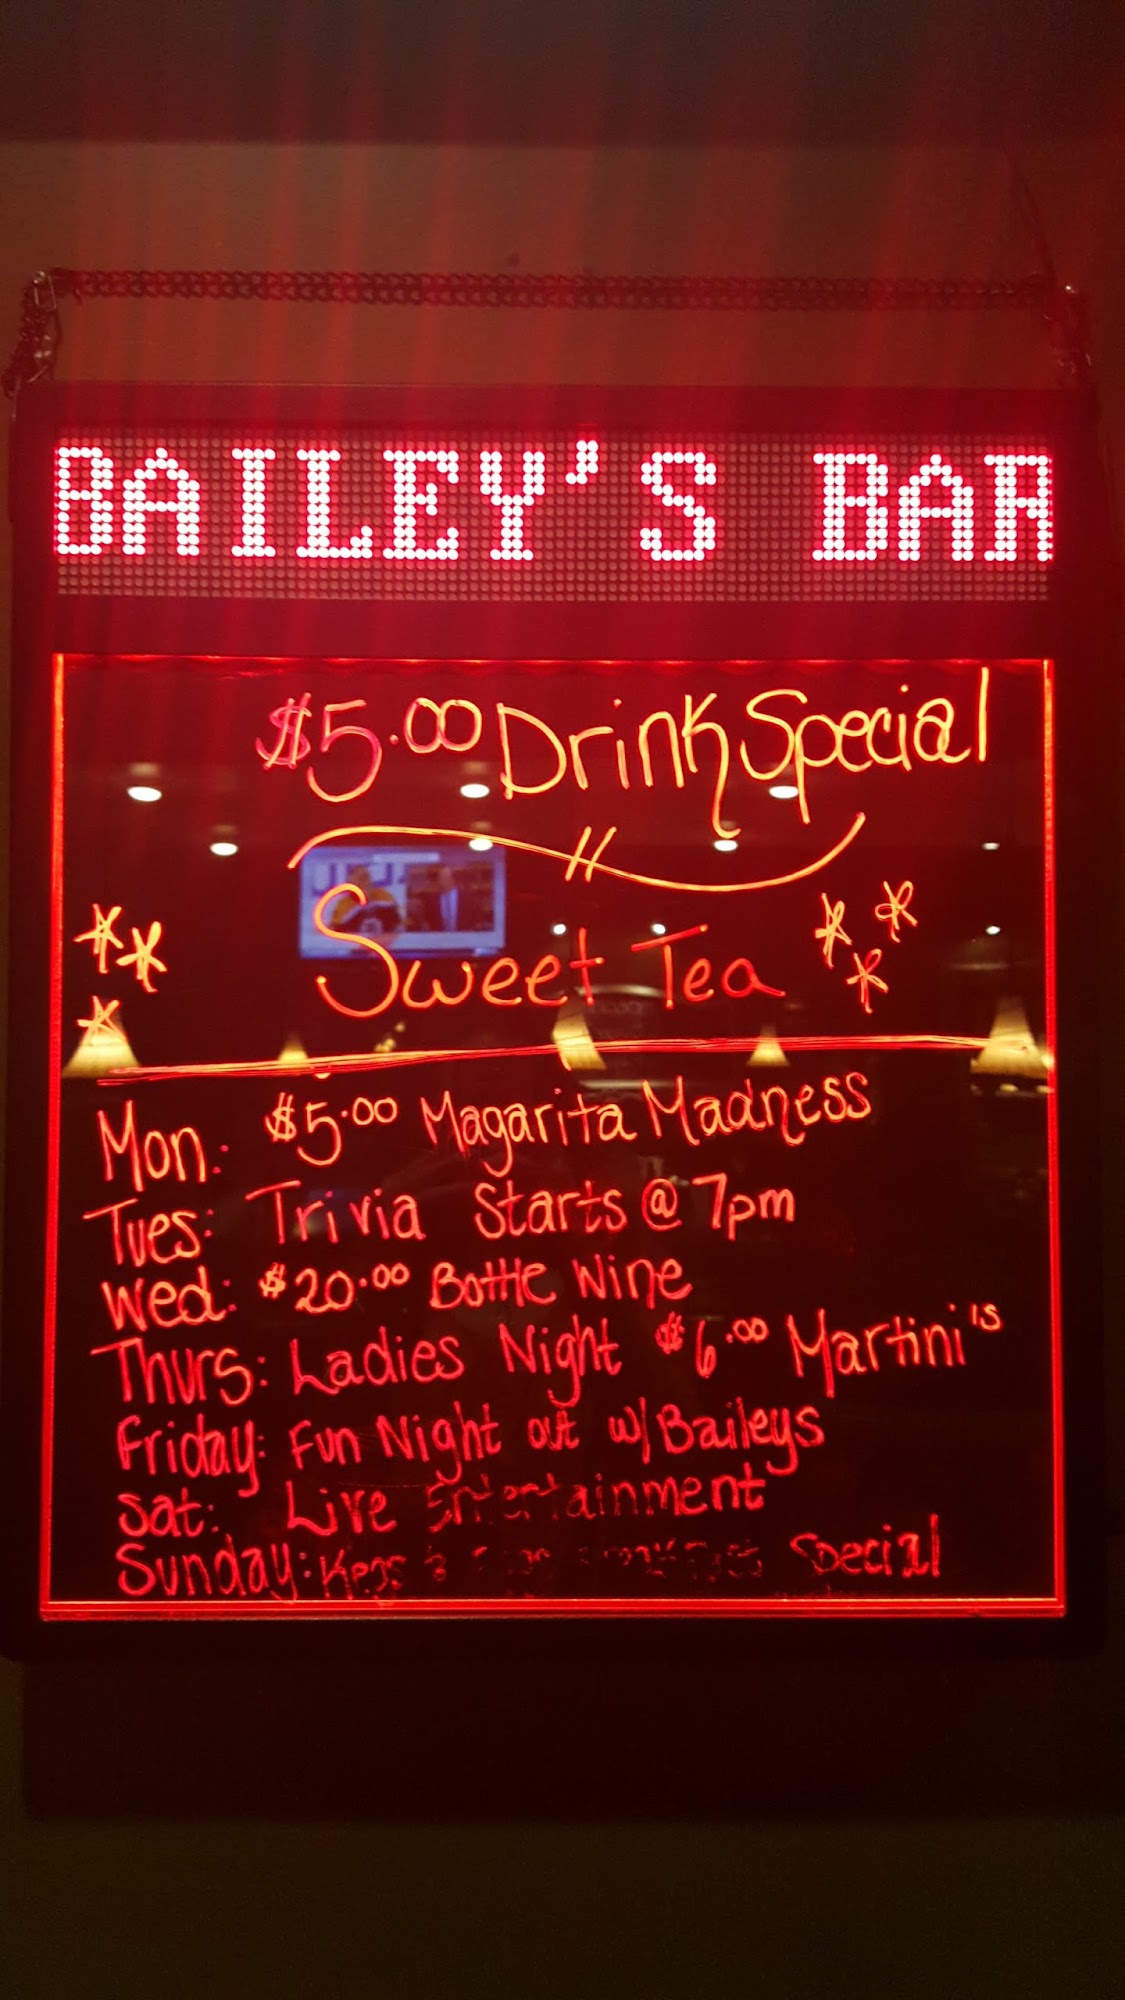 BAILEY'S BAR
$5.00 Drink Special
Sweet Tea
Mon: $5.00 Magarita Madness
Tues: Trivia Starts @ 7pm
Wed: $20.00 Bottle Wine
Thurs: Ladies Night $6.00 Martini's
Friday: Fun Night out w/ Baileys
Sat: Live Entertainment
Sunday: Kegs & Special